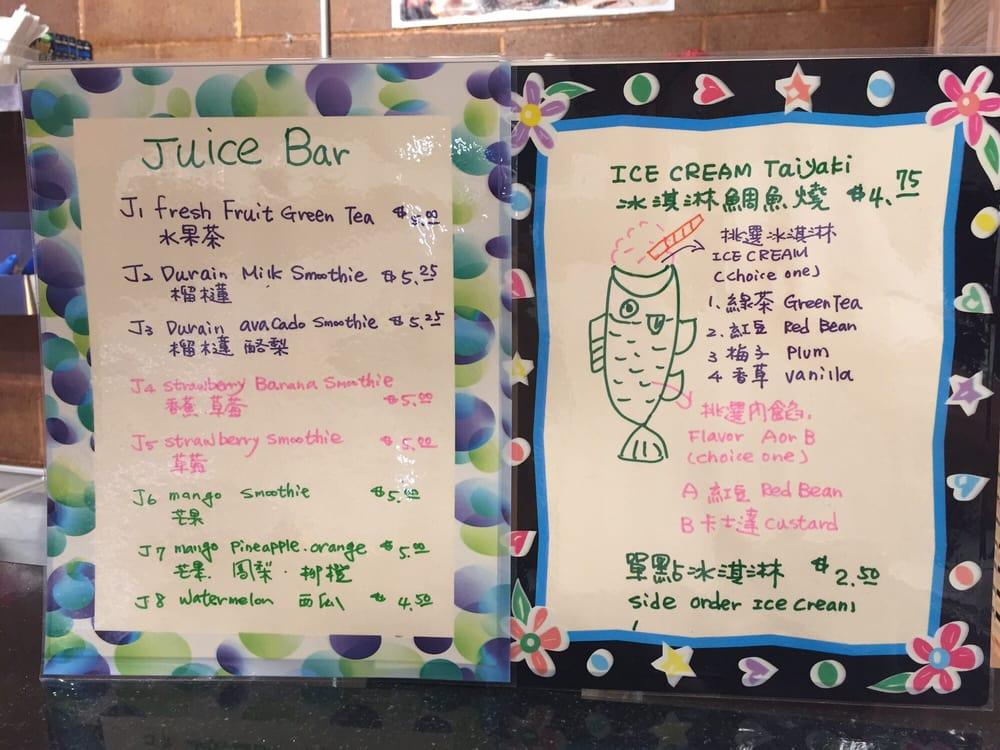 Juice Bar
J1 fresh Fruit Green Tea $5.00
水果茶
J2 Durain Milk Smoothie $5.25
榴槤
J3 Durain avacado Smoothie $5.25
榴槤 酪梨
J4 strawberry Banana Smoothie
香蕉 草莓 $5.00
J5 strawberry smoothie $5.00
草莓
J6 mango smoothie $5.00
芒果
J7 mango pineapple.orange $5.00
芒果. 鳳梨. 柳橙
J8 watermelon 西瓜 $4.50
ICE CREAM Taiyaki
冰淇淋鯛魚燒 $4.75
挑選冰淇淋
ICE CREAM
(choice one)
1. 綠茶 Green Tea
2. 紅豆 Red Bean
3 梅子 Plum
4 香草 vanilla
挑選內餡.
Flavor A or B
(choice one)
A 紅豆 Red Bean
B 卡士達 custard
單點冰淇淋 $2.50
side order Ice Cream